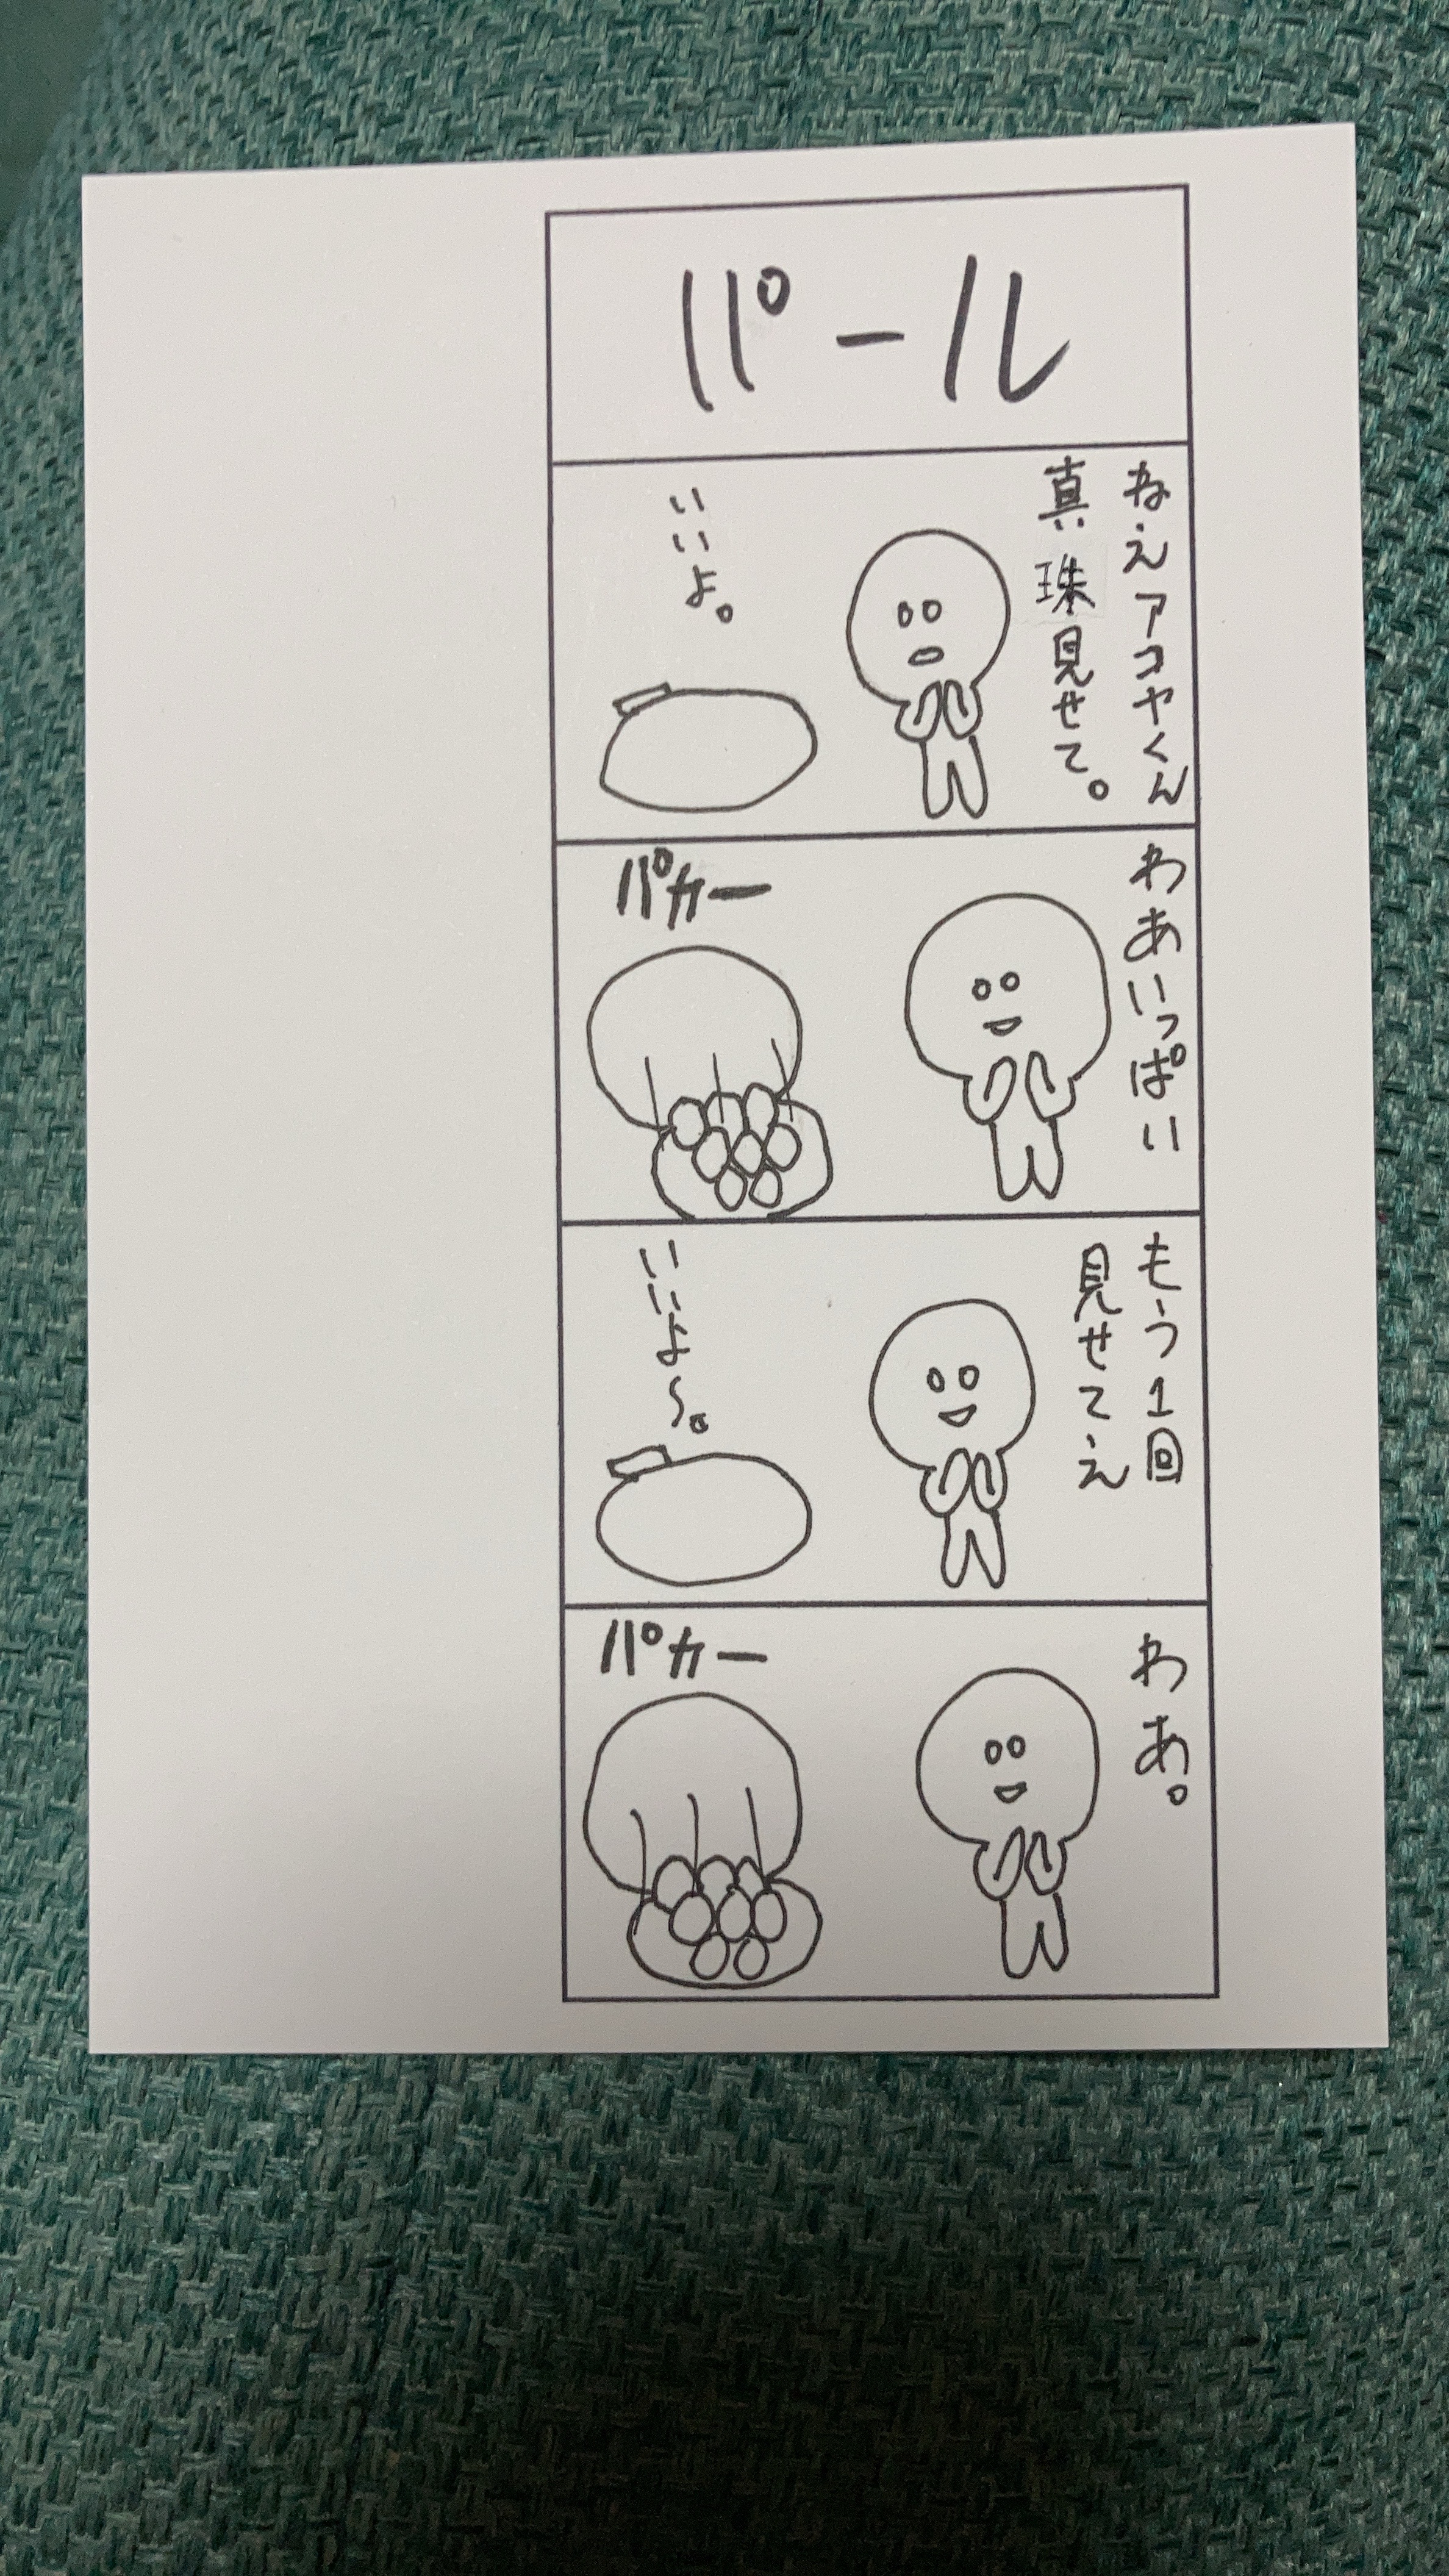 パール
ねえアコヤくん
真珠見せて。
いいよ。
わあいっぱい
パカー
もう1回
見せてえ
いいよ~。
わあ。
パカー